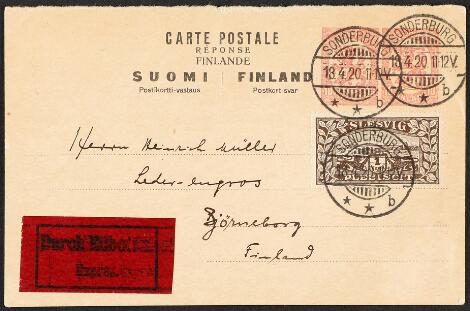 CARTE POSTALE
RÉPONSE
FINLANDE
SUOMI FINLAND
Postikortti-vastaus Postkort-svar
SONDERBURG
13.4.20 11-12V.
* * b
SONDERBURG
13.4.20 11-12V.
* * b
SLESVIG
1
SONDERBURG
* * b
Herrn Heinrich Müller
Leder-engros
Björneborg
Finland
Durch